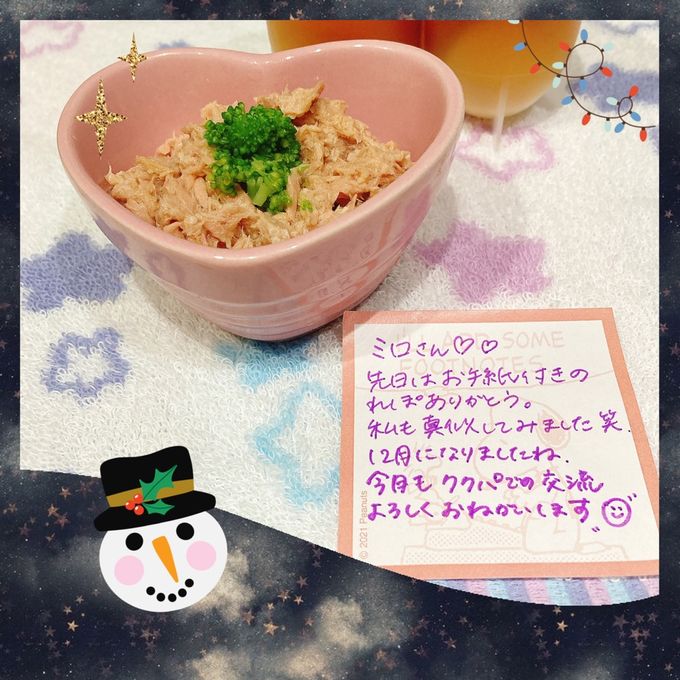 I'LL ADD SOME
FOOTNOTES
ミロさん♡♡
先日はお手紙付きの
れぽありがとう。
私も真似してみました笑.
12月になりましたね.
今月もクックパでの交流
よろしくおねがいします
© 2021 Peanuts